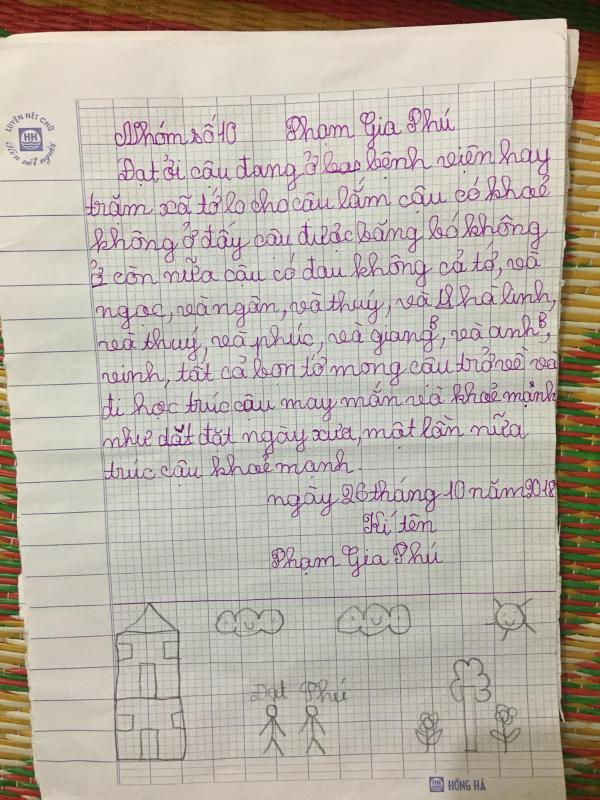 LUYỆN NÉT CHỮ
HH
Rèn nết người
Nhóm số 10 Phạm Gia Phú
Đạt ởi câu đang ở bệnh viện hay
trăm xã tớ lo cho câu lắm cậu có khoẻ
không ở đấy câu được băng bó không
còn nữa cậu có đau không cả tớ, và
ngọc, và ngân, và thuý, và hà linh,
và thuý, và phúc, và giang B, và anh B,
vinh, tất cả bọn tớ mong câu trở về và
đi học trúc cậu may mắn và khoẻ mạnh
như dắt đắt ngày xưa, một lần nữa
trúc cậu khoẻ mạnh.
ngày 26 tháng 10 năm 2018
Kí tên
Phạm Gia Phú
Đạt Phú
HH HỒNG HÀ